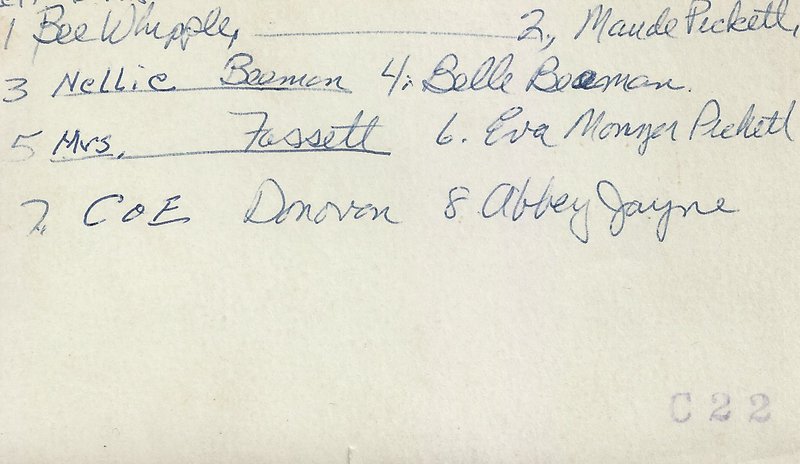 1 Bee Whipple, 2, Maude Pickett,
3 Nellie Beeman 4, Belle Beeman.
5 Mrs. Fassett 6. Eva Monger Pickett
7, COE Donovan 8. Abbey Jayne
C22